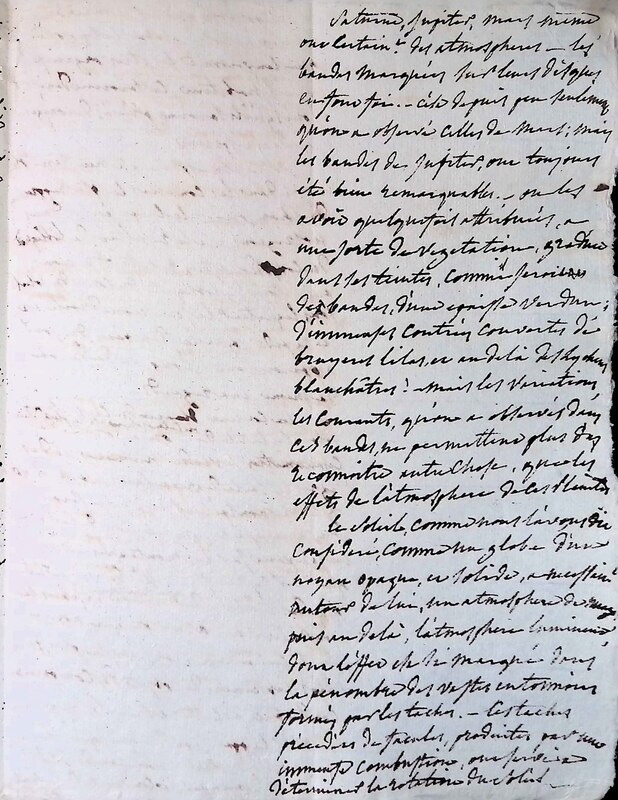 Saturne, Jupiter, mars même
ont certain.t des atmospheres — les
bandes marquées sur leurs disques
en font foi. — c'est depuis peu seulement
qu'on a observé celles de Mars; mais
les bandes de Jupiter, ont toujours
été bien remarquables. — on les
avoit quelquefois attribuées, a
une sorte de vegetation, graduée
dans ses teintes, comme seroient
des bandes, d'une epaisse verdure;
d'immenses contrées couvertes de
bruyeres lilas, et au delà des lychens
blanchâtres! — mais les variations
les courants, qu'on a observés dans
ces bandes, ne permettent plus d'y
reconnoitre autre chose, que les
effets de l'atmosphere de ces Planetes
le Soleil, comme nous l'avons dit
consideré, comme un globe d'un
noyau opaque, et solide, a necessair.t
autour de lui, un atmosphere de
puis au delà, l'atmosphere lumineuse
dont l'effet est si marqué dans
la pénombre des vastes entonnoirs
formés par les taches. — les taches
précédées de facules, produites par une
immense combustion, ont servi a
déterminer la rotation du Soleil